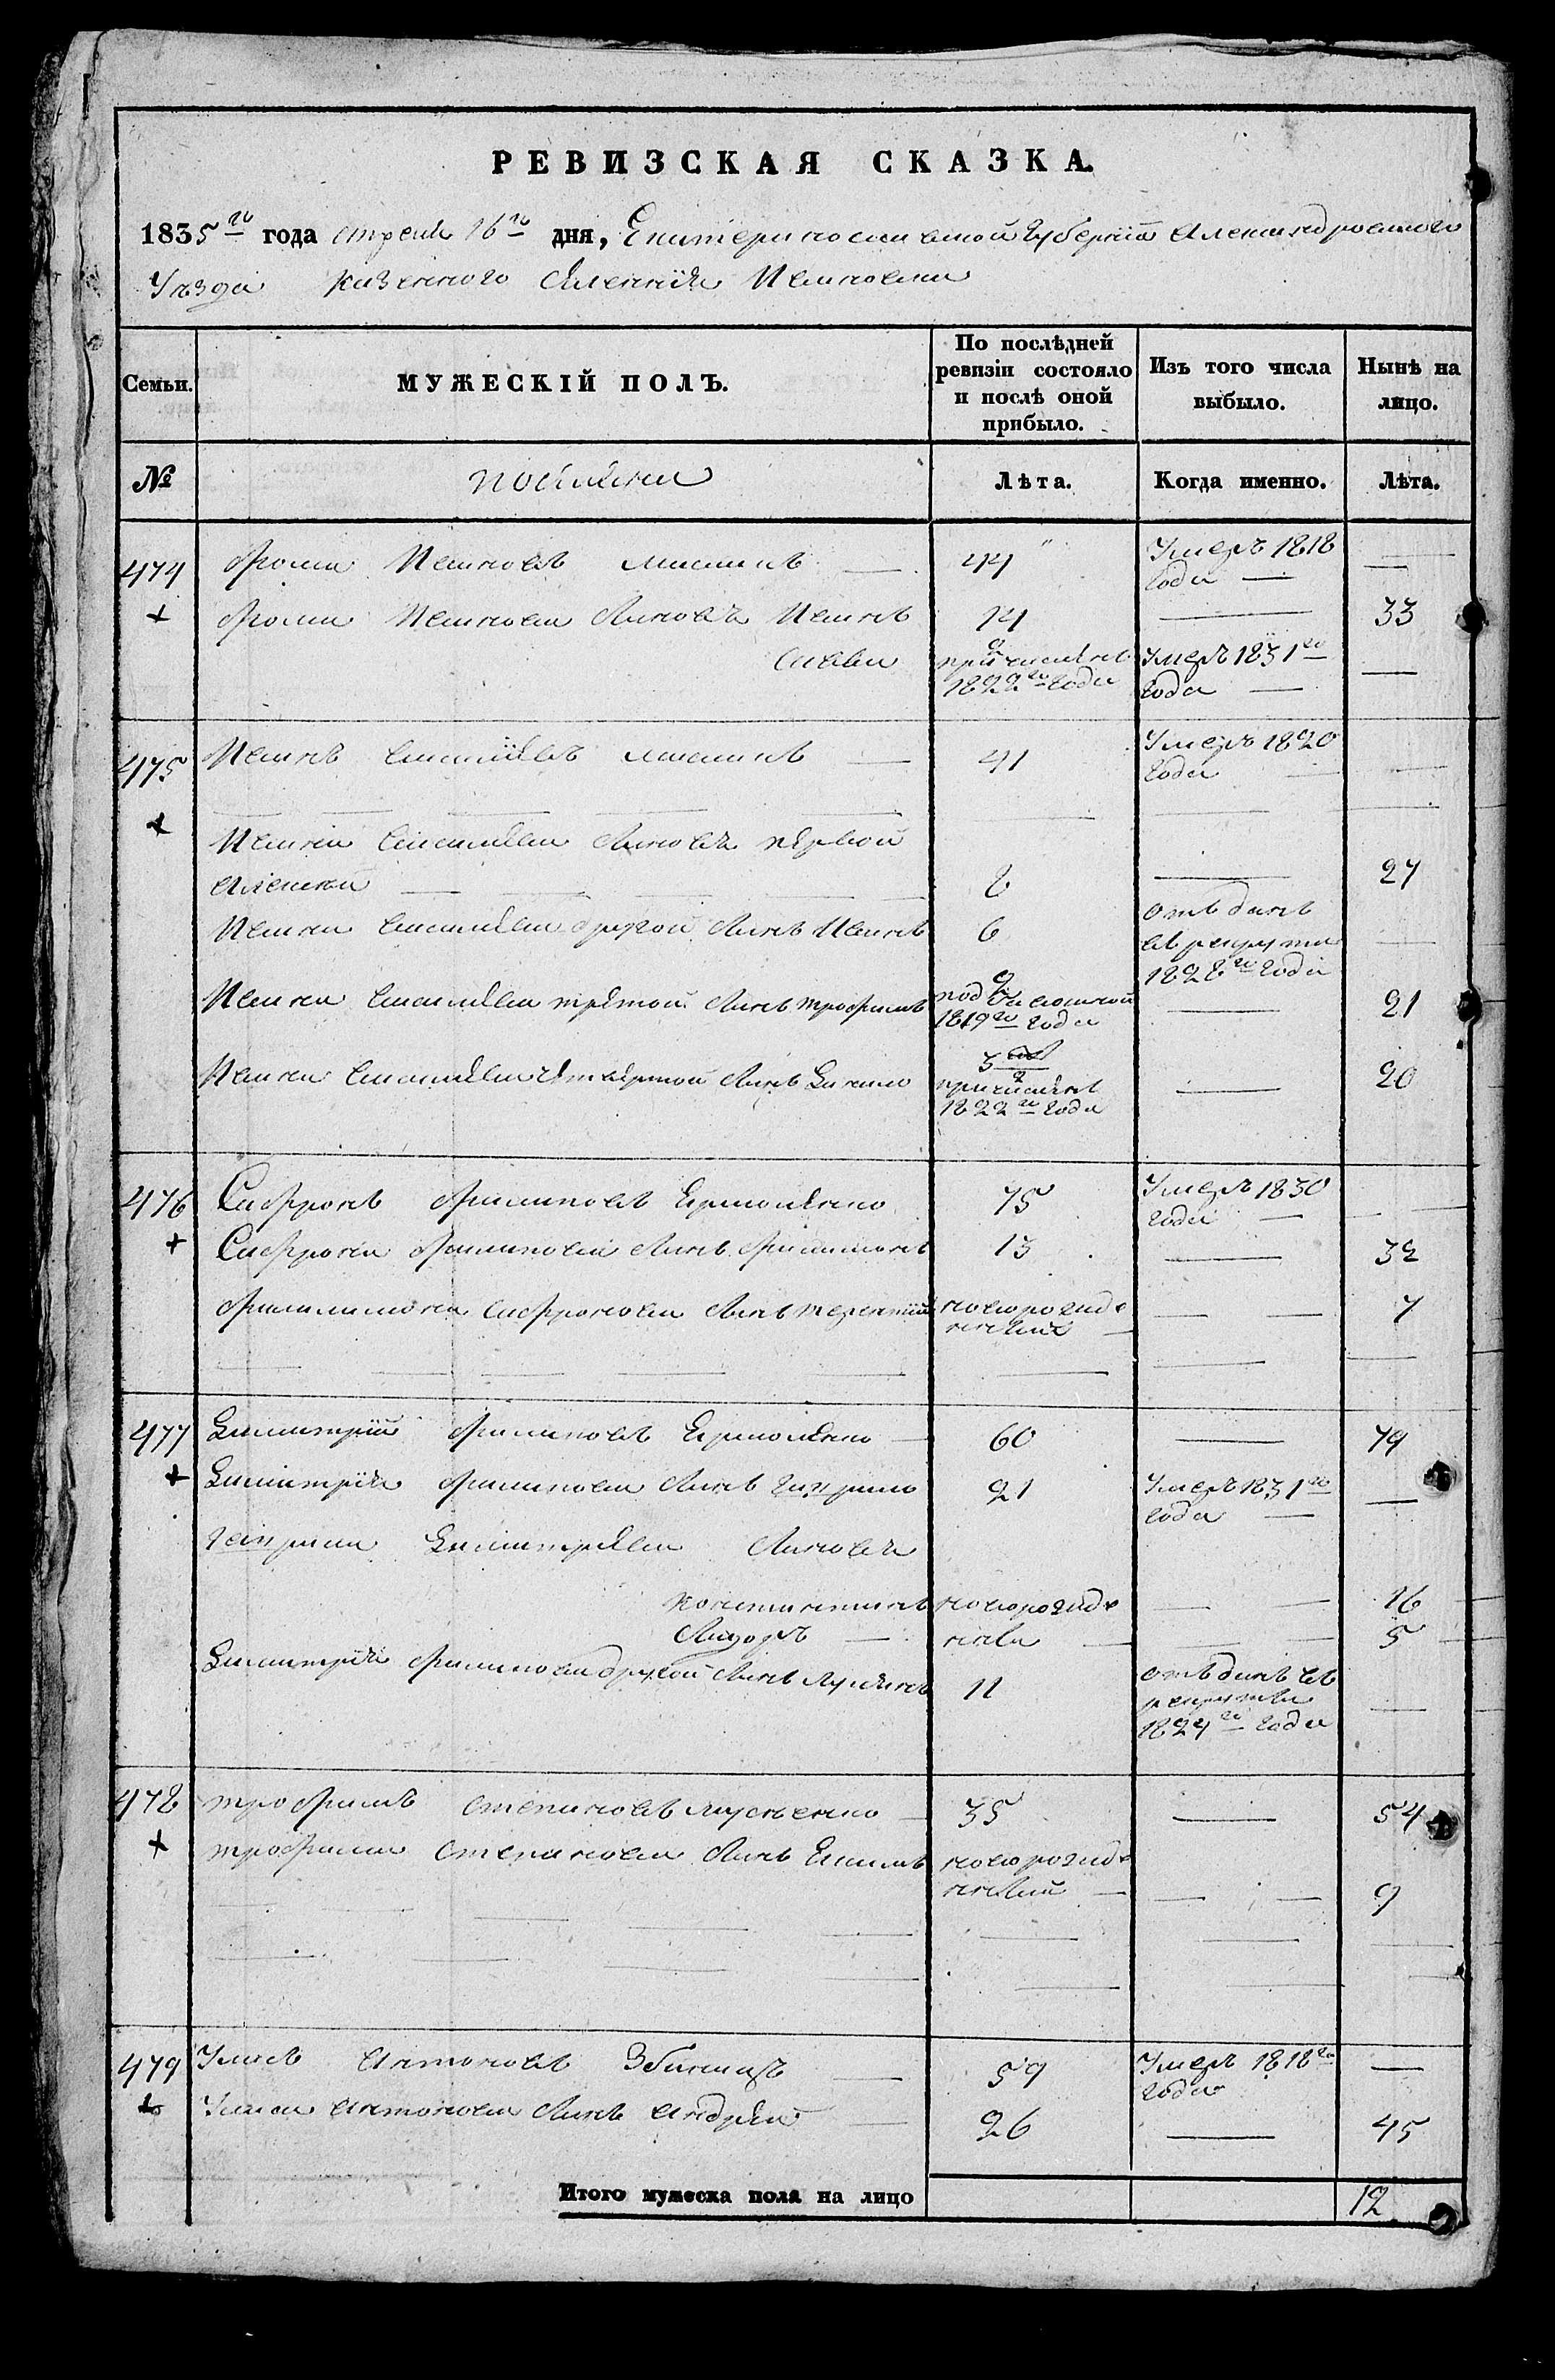 РЕВИЗСКАЯ СКАЗКА.
1835го года апреля 16го дня, Екатеринославской Губернiи Александровского
Уезда казенного селенiя Ивановки
Семьи. МУЖЕСКІЙ ПОЛЪ. По послѣдней ревизіи состояло и послѣ оной прибыло. Изъ того числа выбыло. Нынѣ на лицо.
№ поселяне Лѣта. Когда именно. Лѣта.
474 Фома Ивановъ 44 Умеръ 1818 года
Фомы Иванова сыновья Иванъ 14 33
Савва причисленъ 1822го года Умеръ 1831го года
475 Иванъ Васильевъ 41 Умеръ 1820 года
Ивана Васильева сыновья первой
Алексей 8 27
Ивана Васильева другой сынъ Иванъ 6 отъданъ въ рекруты 1828го года
Ивана Васильева третой сынъ трофимъ 2 1819го года 21
Ивана Васильева четвертой сынъ Данило причисленъ 1822го года 20
476 Сафронъ Филиповъ Ермоленко 75 Умеръ 1830 года
Сафрона Филипова сынъ Филимонъ 13 32
Филимона Сафронова сынъ терентий новорожденный 7
477 Дмитрій Филиповъ Ермоленко 60 79
Дмитрія Филипова сынъ гаврило 21 Умеръ 1831го года
гаврила Дмитрiева сыновья
константинъ новорожденны 16
Сидоръ 5
Дмитрія Филипова другой сынъ лукьянъ 11 отъданъ въ рекруты 1824го года
478 трофимъ степановъ 35 54
трофима степанова сынъ Есипъ новорожденный 9
479 антоновъ 59 Умеръ 1818го года
антонова сынъ андрей 26 45
Итого мужеска пола на лицо 12